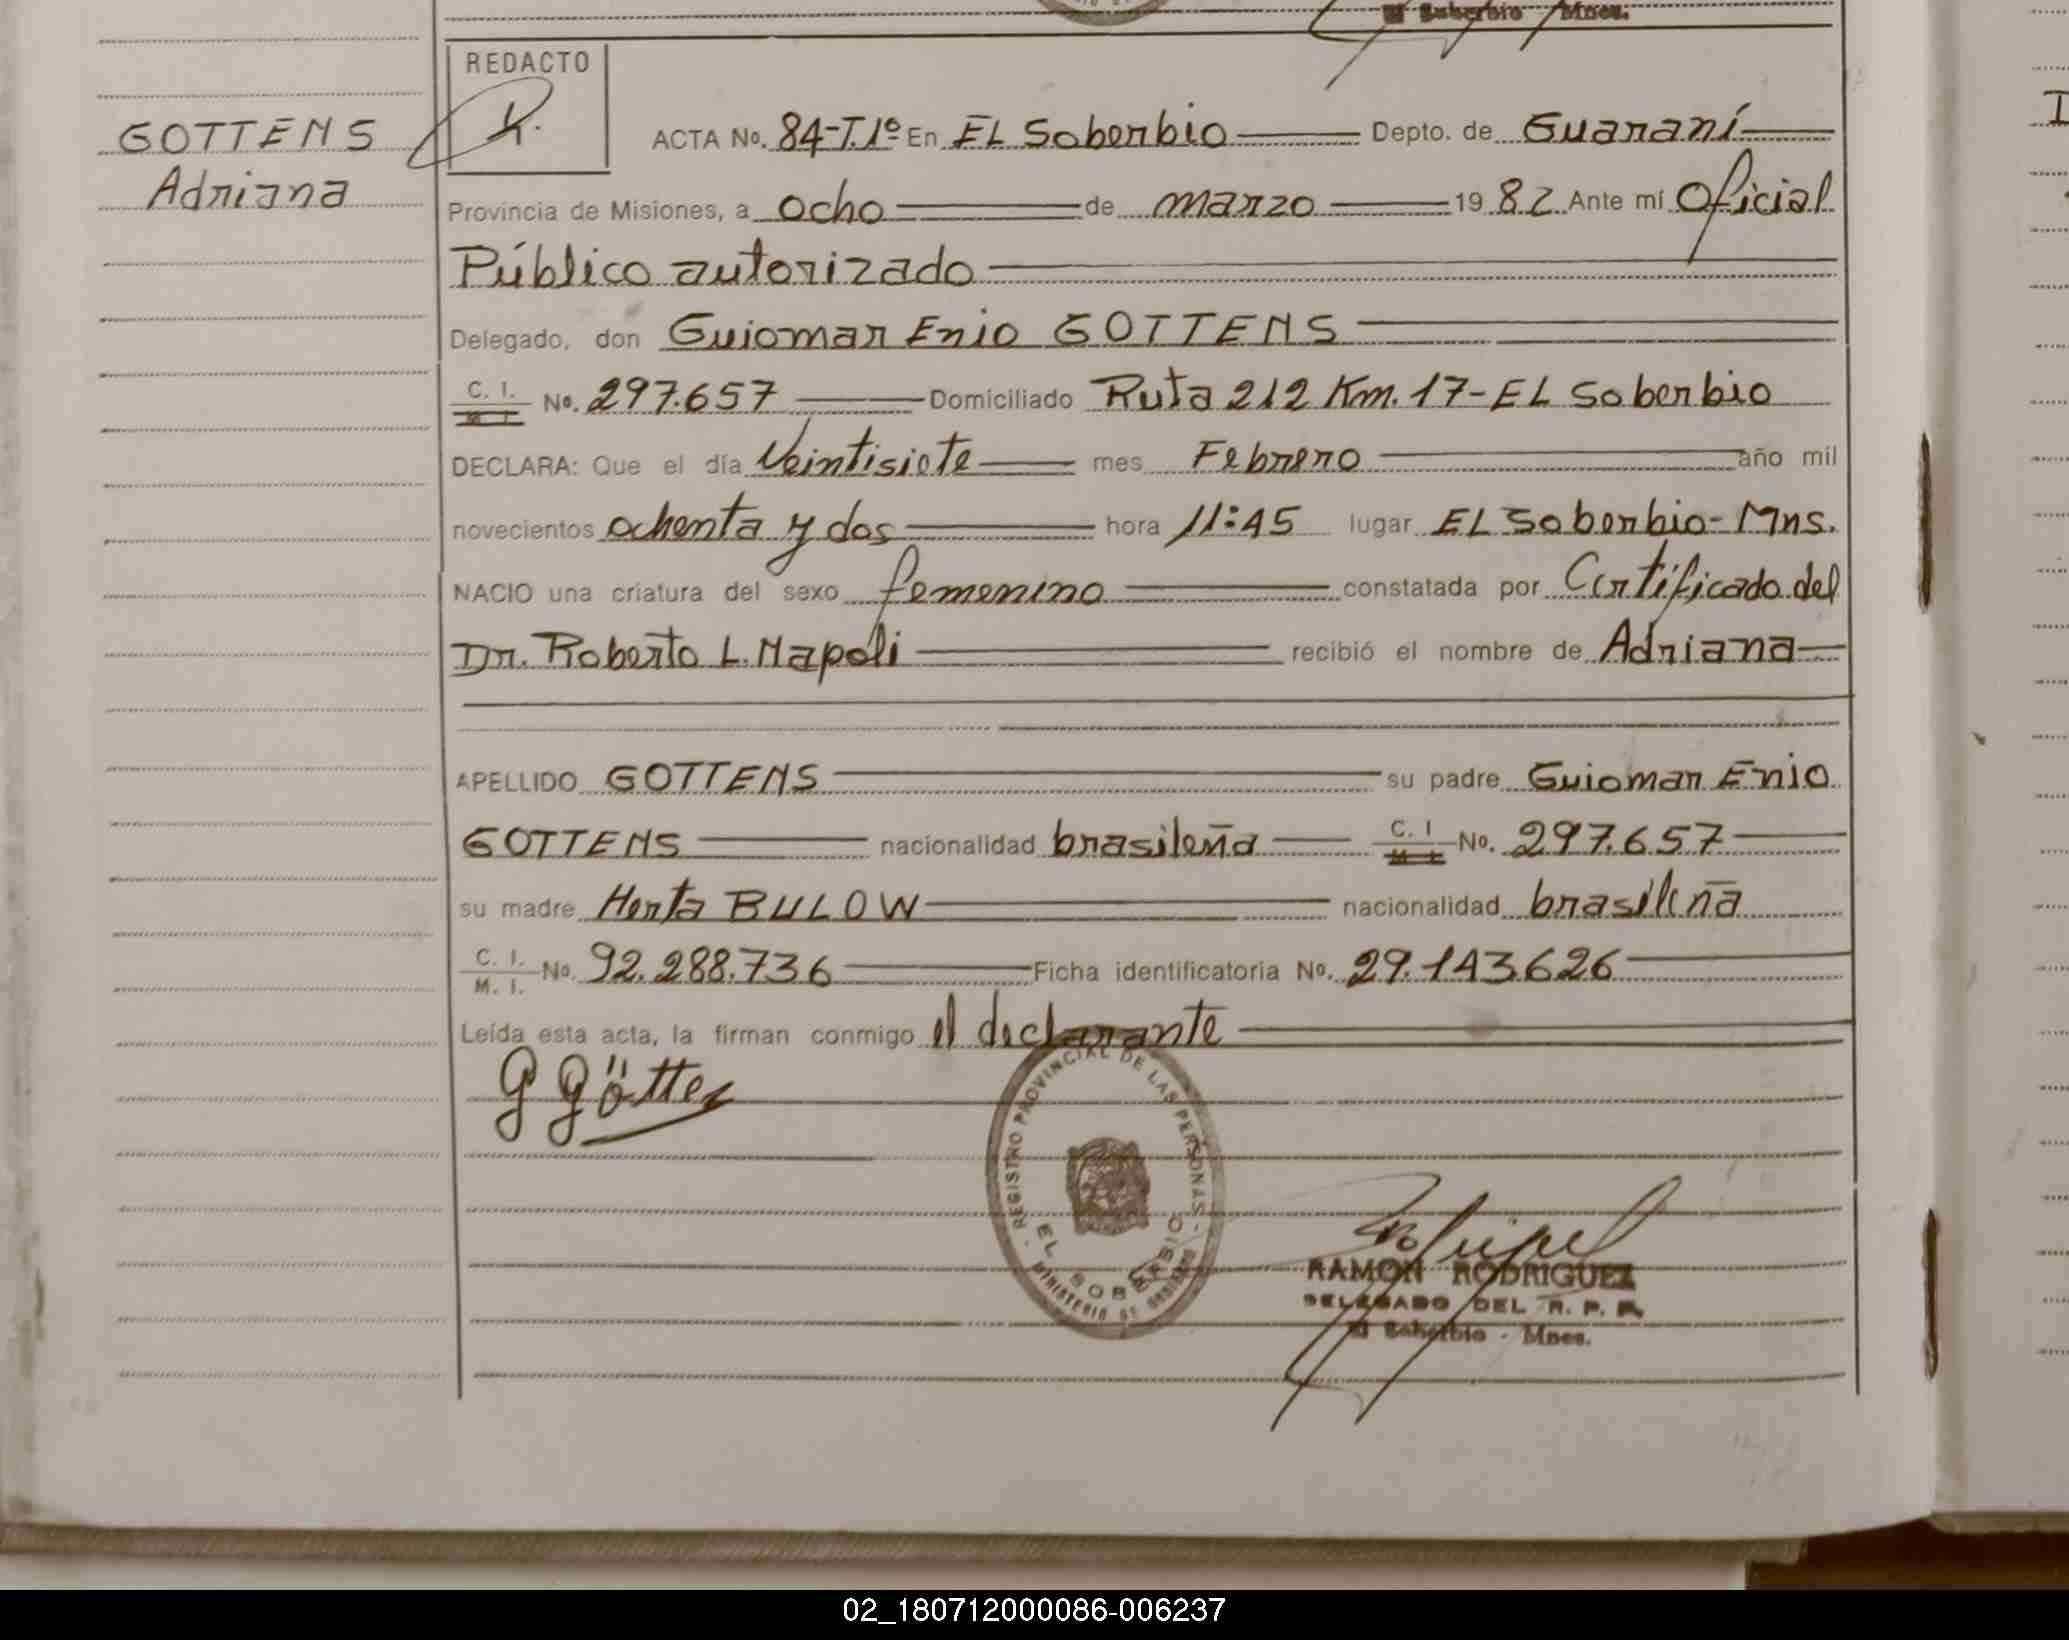 El Soberbio Mnes.
REDACTO
GOTTENS
Adriana
ACTA No. 84-T.1º En EL Soberbio Depto. de Guaraní
Provincia de Misiones, a ocho de marzo 1982 Ante mí Oficial
Público autorizado
Delegado, don Guiomar Enio GOTTENS
C. I. M. I. No. 297.657 Domiciliado Ruta 212 Km. 17-EL Soberbio
DECLARA: Que el día Veintisiete mes Febrero año mil
novecientos ochenta y dos hora 11:45 lugar EL Soberbio-Mns.
NACIO una criatura del sexo femenino constatada por Certificado del
Dr. Roberto L. Napoli recibió el nombre de Adriana
APELLIDO GOTTENS su padre Guiomar Enio
GOTTENS nacionalidad brasileña C. I M. I. No. 297.657
su madre Herta BULOW nacionalidad brasileña
C. I. M. I. No. 92.288.736 Ficha identificatoria No. 29.143.626
Leída esta acta, la firman conmigo el declarante
G Götten
REGISTRO PROVINCIAL DE LAS PERSONAS
EL SOBERBIO
MINISTERIO DE GOBIERNO
RAMON RODRIGUEZ
DELEGADO DEL R. P. P.
El Soberbio - Mnes.
02_180712000086-006237